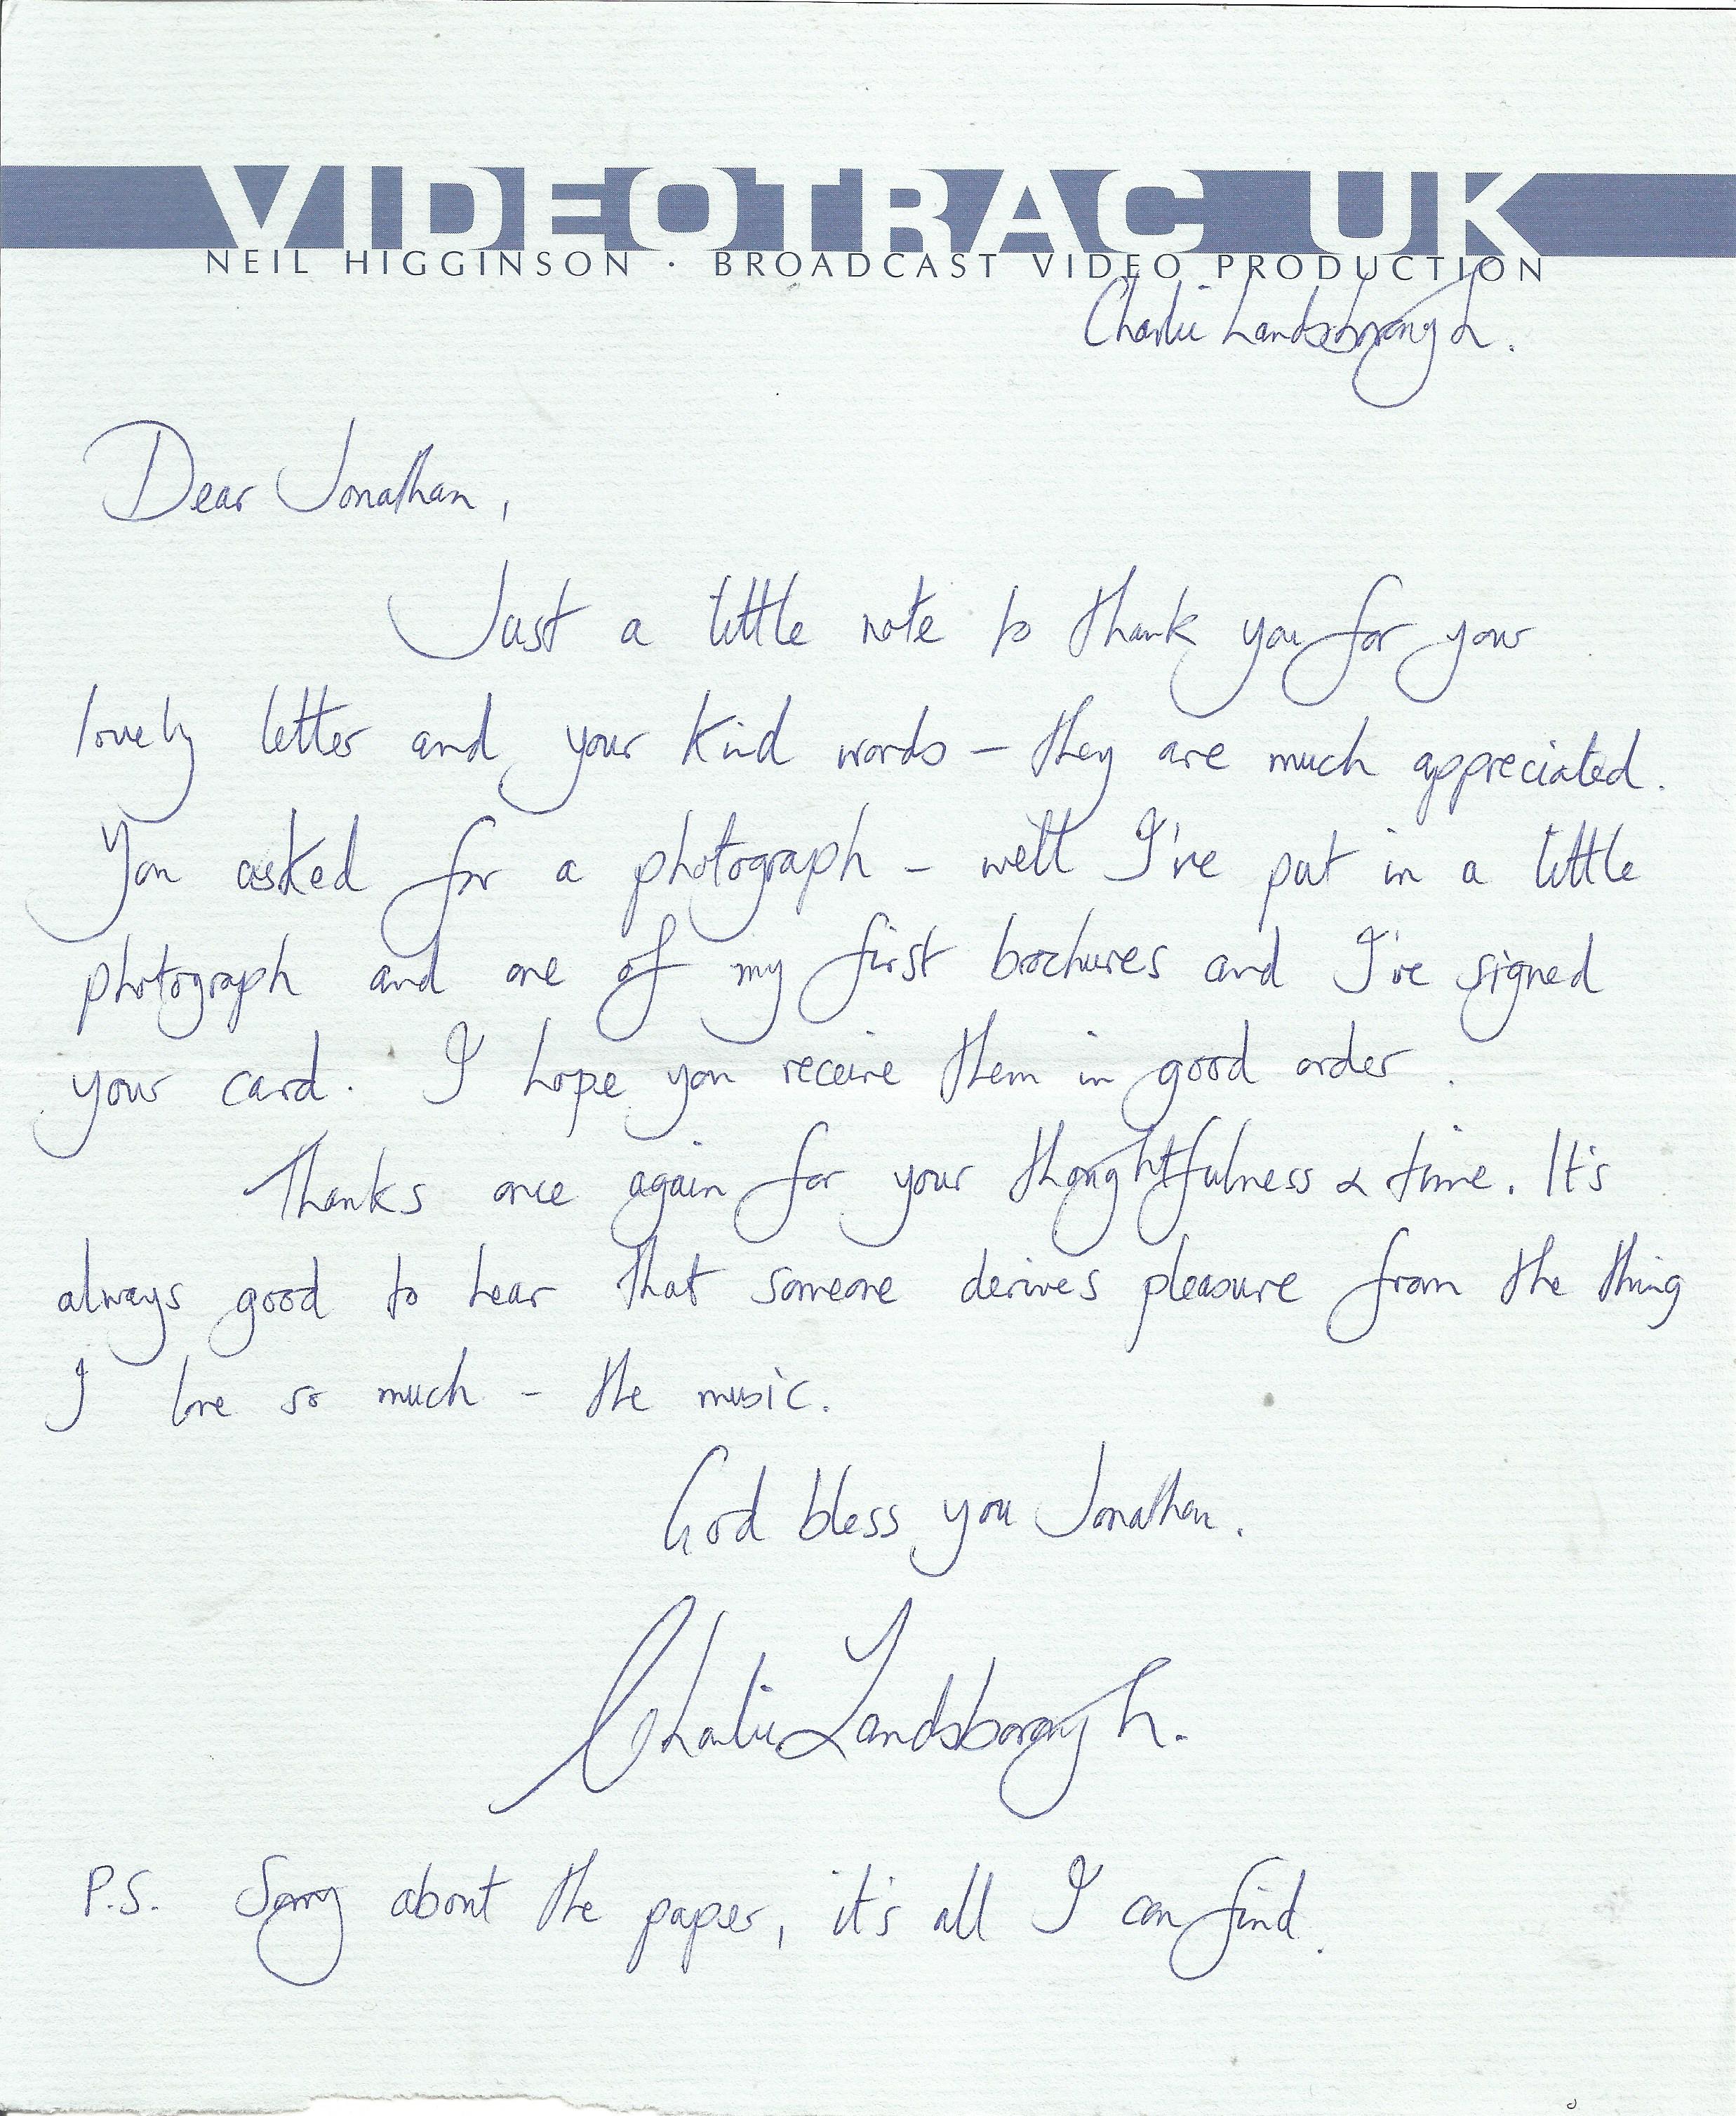 VIDEOTRAC UK
NEIL HIGGINSON · BROADCAST VIDEO PRODUCTION
Charlie Landsborough.
Dear Jonathan,
Just a little note to thank you for your
lovely letter and your kind words – they are much appreciated.
You asked for a photograph – well I've put in a little
photograph and one of my first brochures and I've signed
your card. I hope you receive them in good order.
Thanks once again for your thoughtfulness & time. It's
always good to hear that someone derives pleasure from the thing
I love so much – the music.
God bless you Jonathan.
Charlie Landsborough.
P.S. Sorry about the paper, it's all I can find.